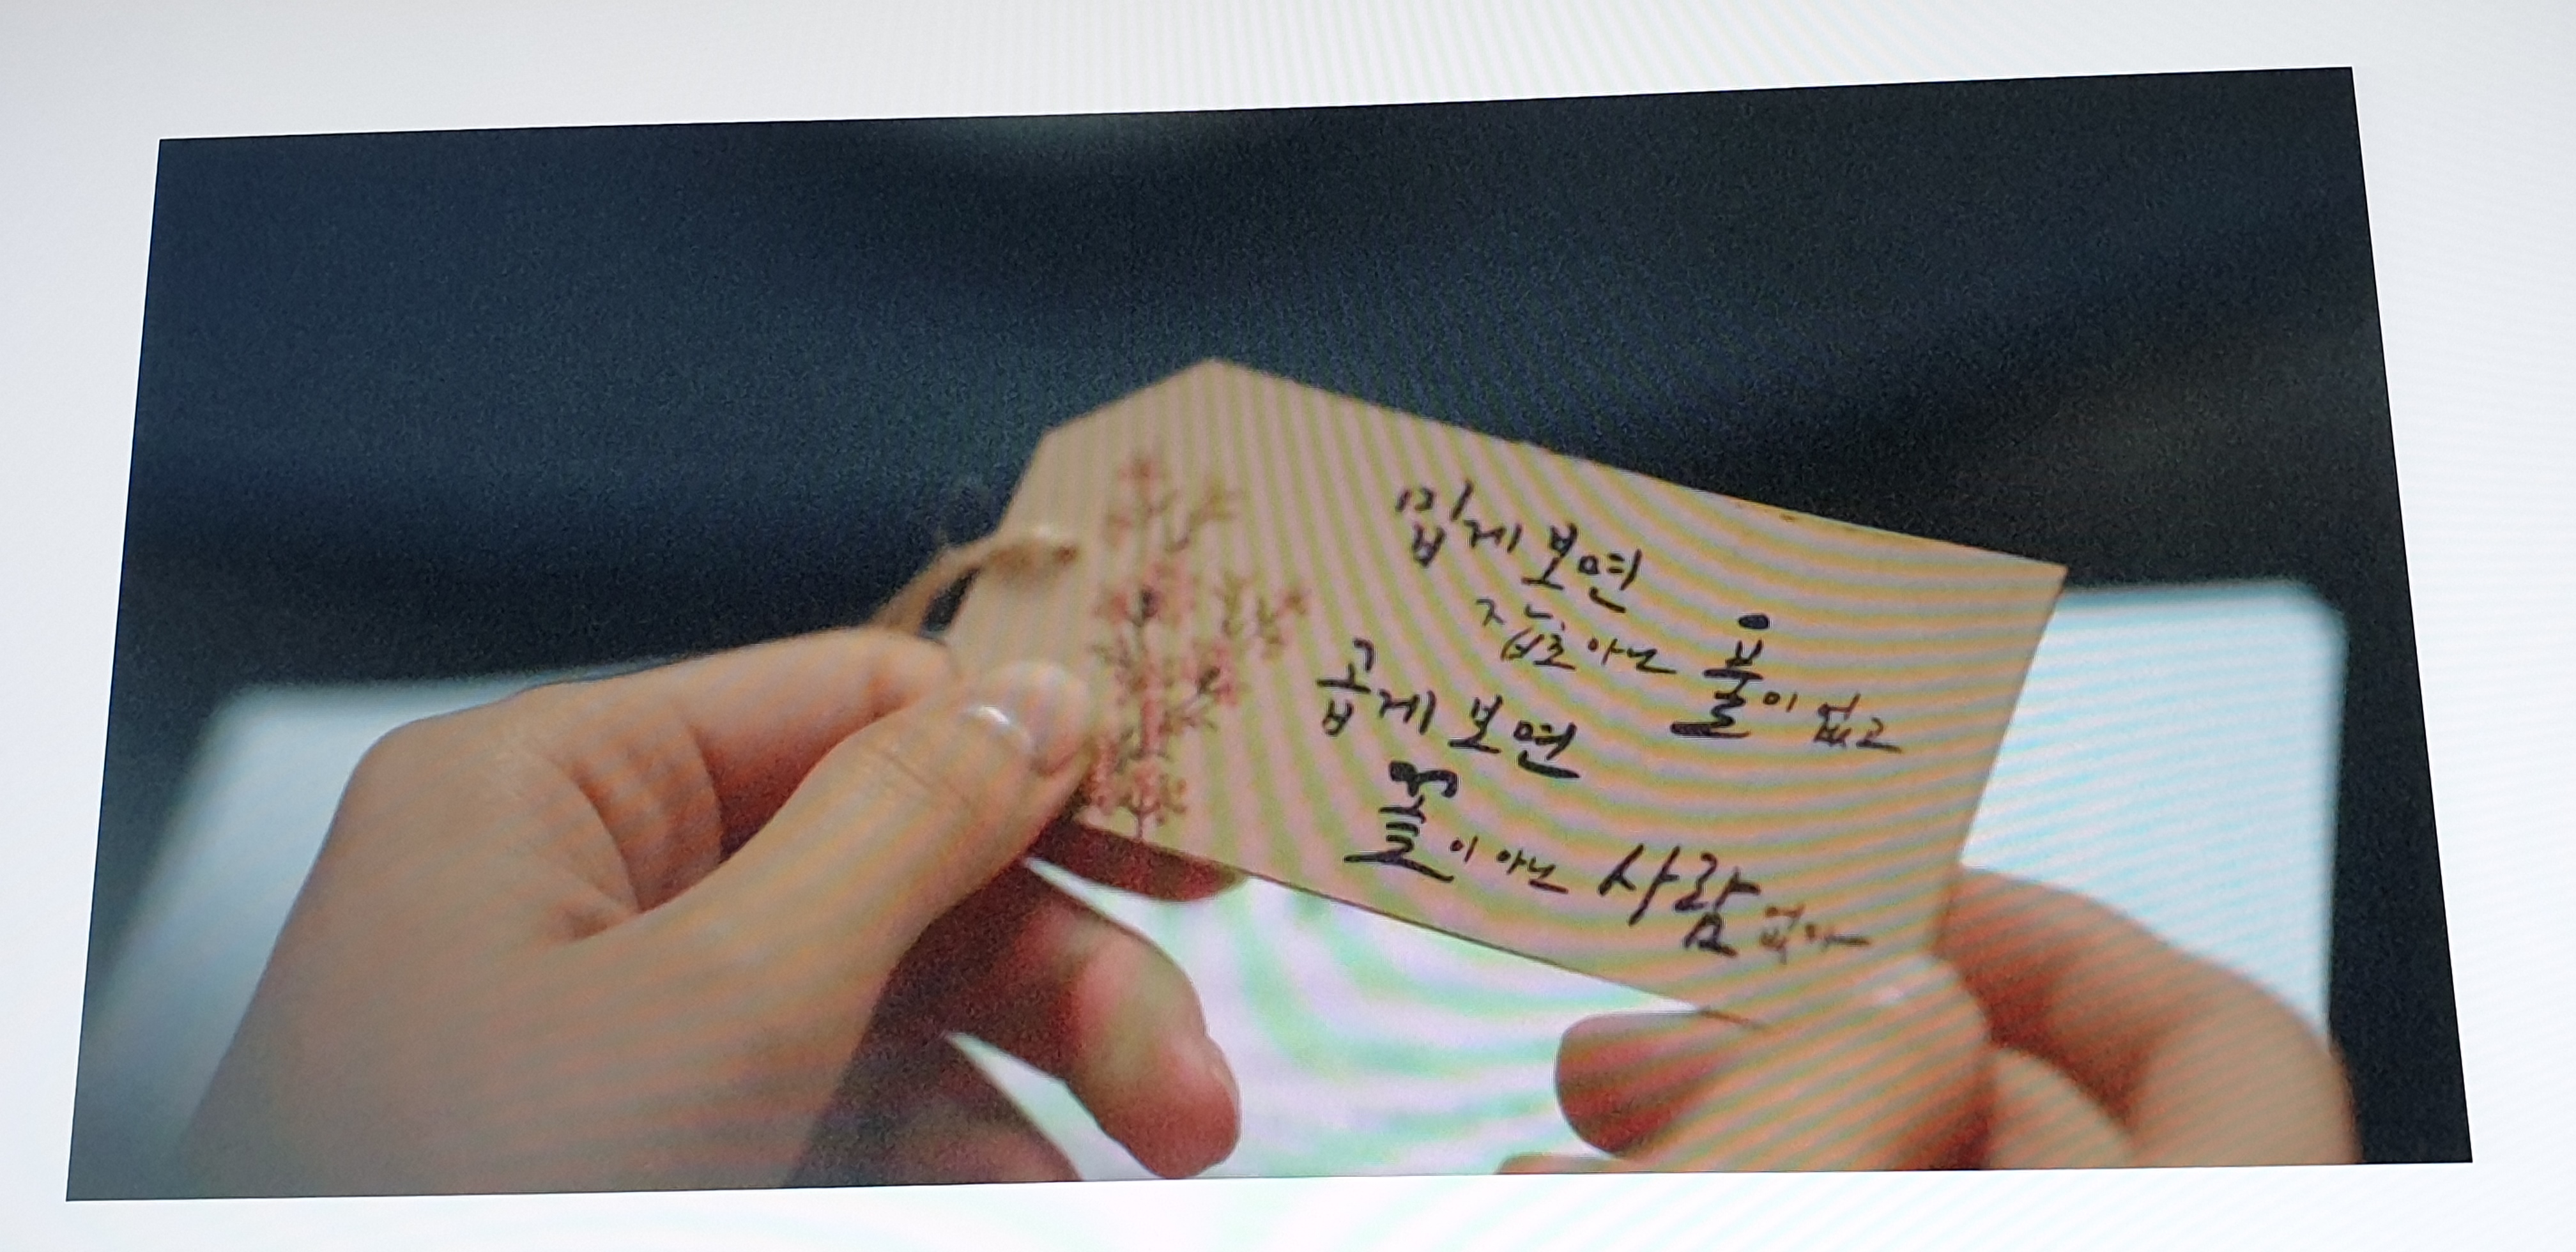 밉게 보면
잡초 아닌 풀이 없고
곱게 보면
꽃이 아닌 사람 없다